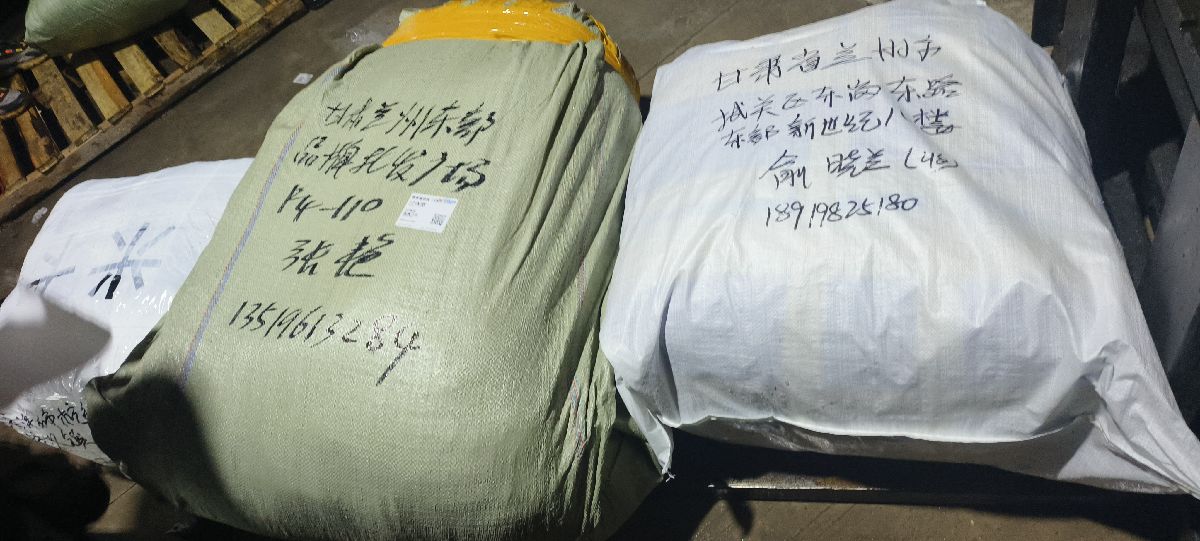 甘肃兰州东部
品牌批发广场
F4-110
张艳
13519613284
甘肃省兰州市
城关区东岗东路
东部新世纪八楼
俞晓兰(收)
18919825180
米